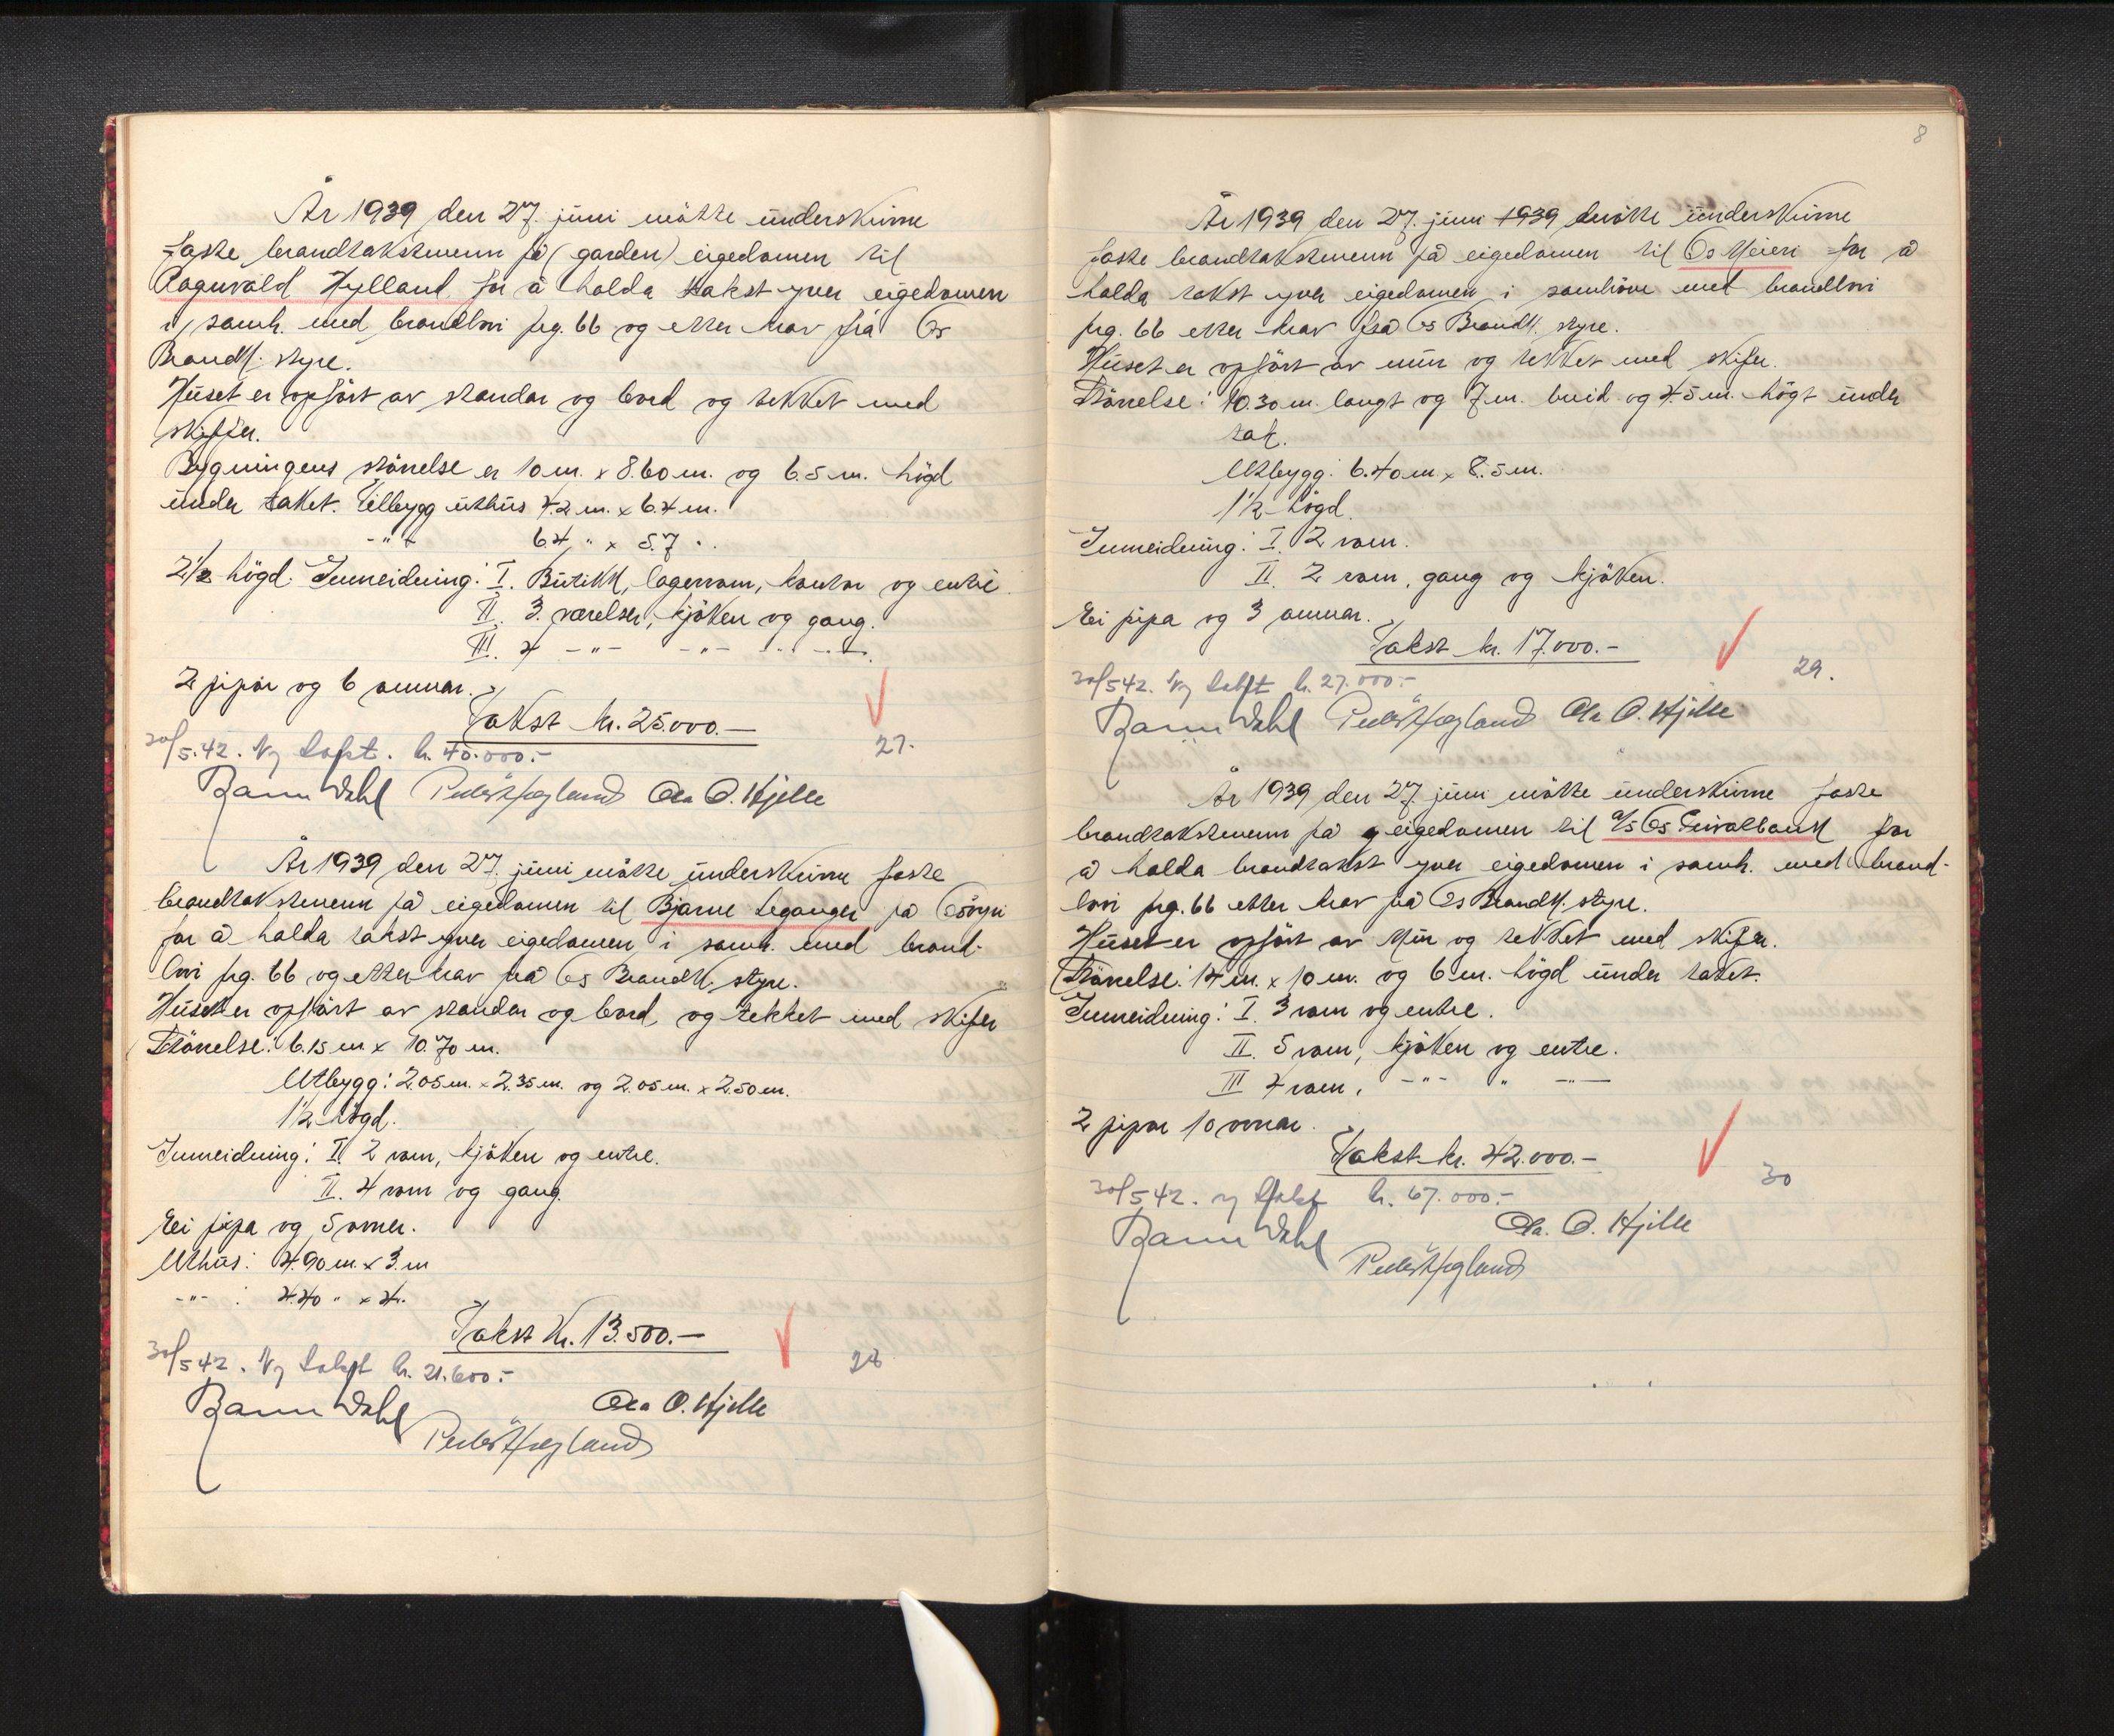 År 1939 den 27. juni møtte underskrivne
faste brandtakstmenn på (garden) eigedomen til
Ragnvald Hylland for å halda takst yver eigedomen
i samh. med brandlovi prg. 66 og etter krav frå Os
Brandk. styre.
Huset er opført av standar og bord og tekket med
skiffer.
Bygningens størrelse er 10 m. x 8.60 m. og 6.5 m. högd
under taket. Tilbygg uthus 4.2 m. x 6.4 m.
-"- 6.4 " x 5.7 "
2 1/2 högd. Innreidning: I. Butikk, lagerrom, kontor og entré.
II. 3 værelser, kjøken og gang.
III. 4 -"- -"- -"-
2 pipor og 6 omnar.
Takst kr. 25.000.-
30/5.42. Ny takst. kr. 40.000.-
27.
Dahl Ola O. Hjelle
År 1939 den 27. juni møtte underskrivne faste
brandtakstmenn på eigedomen til Bjarne Leganger på Osøyri
for å halda takst yver eigedomen i samh. med brand-
lovi prg. 66 og etter krav frå Os Brandk. styre.
Huset er opført av standar og bord og tekket med skifer
Størrelse: 6.15 m x 10.70 m.
Utbygg: 2.05 m. x 2.35 m. og 2.05 m. x 2.50 m.
1 1/2 högd.
Innreidning: I. 2 rom, kjøken og entre.
II. 4 rom og gang.
Ei pipa og 5 omner.
Uthus: 4.90 m. x 3. m
-"- : 4.40 " x 4.
Takst Kr. 13.500.-
30/5 42. Ny takst kr. 21.600.-
28
Dahl Ola O. Hjelle
8
År 1939 den 27. juni 1939 møtte underskrivne
faste brandtakstmenn på eigedomen til Os Meieri for å
halda takst yver eigedomen i samhöve med brandlovi
prg. 66 etter krav frå Os Brandk. styre.
Huset er opført av mur og tekket med skifer.
Størrelse: 10.30 m. langt og 7 m. breid og 4.5 m. högt under
tak.
Utbygg: 6.40 m. x 8.5 m.
1 1/2 högd.
Innreidning: I. 2 rom.
II. 2 rom, gang og kjøken.
Ei pipa og 3 omnar.
Takst kr. 17.000.-
30/5 42. Ny takst kr. 27.000.-
29.
Dahl Ola O. Hjelle
År 1939 den 27. juni møtte underskrivne faste
brandtakstmenn på eigedomen til a/s Os Privatbank for
å halda brandtakst yver eigedomen i samh. med brand-
lovi prg. 66 etter krav frå Os Brandk. styre.
Huset er opført av Mur og tekket med skifer.
Størrelse: 14 m. x 10 m. og 6 m. högd under taket.
Innreidning: I. 3 rom og entre.
II. 5 rom, kjøken og entre.
III 4 rom, -"- " -"-
2 pipor 10 omnar.
Takst kr. 42.000.-
30/5 42. ny takst kr. 67.000.-
30
Dahl Ola. O. Hjelle